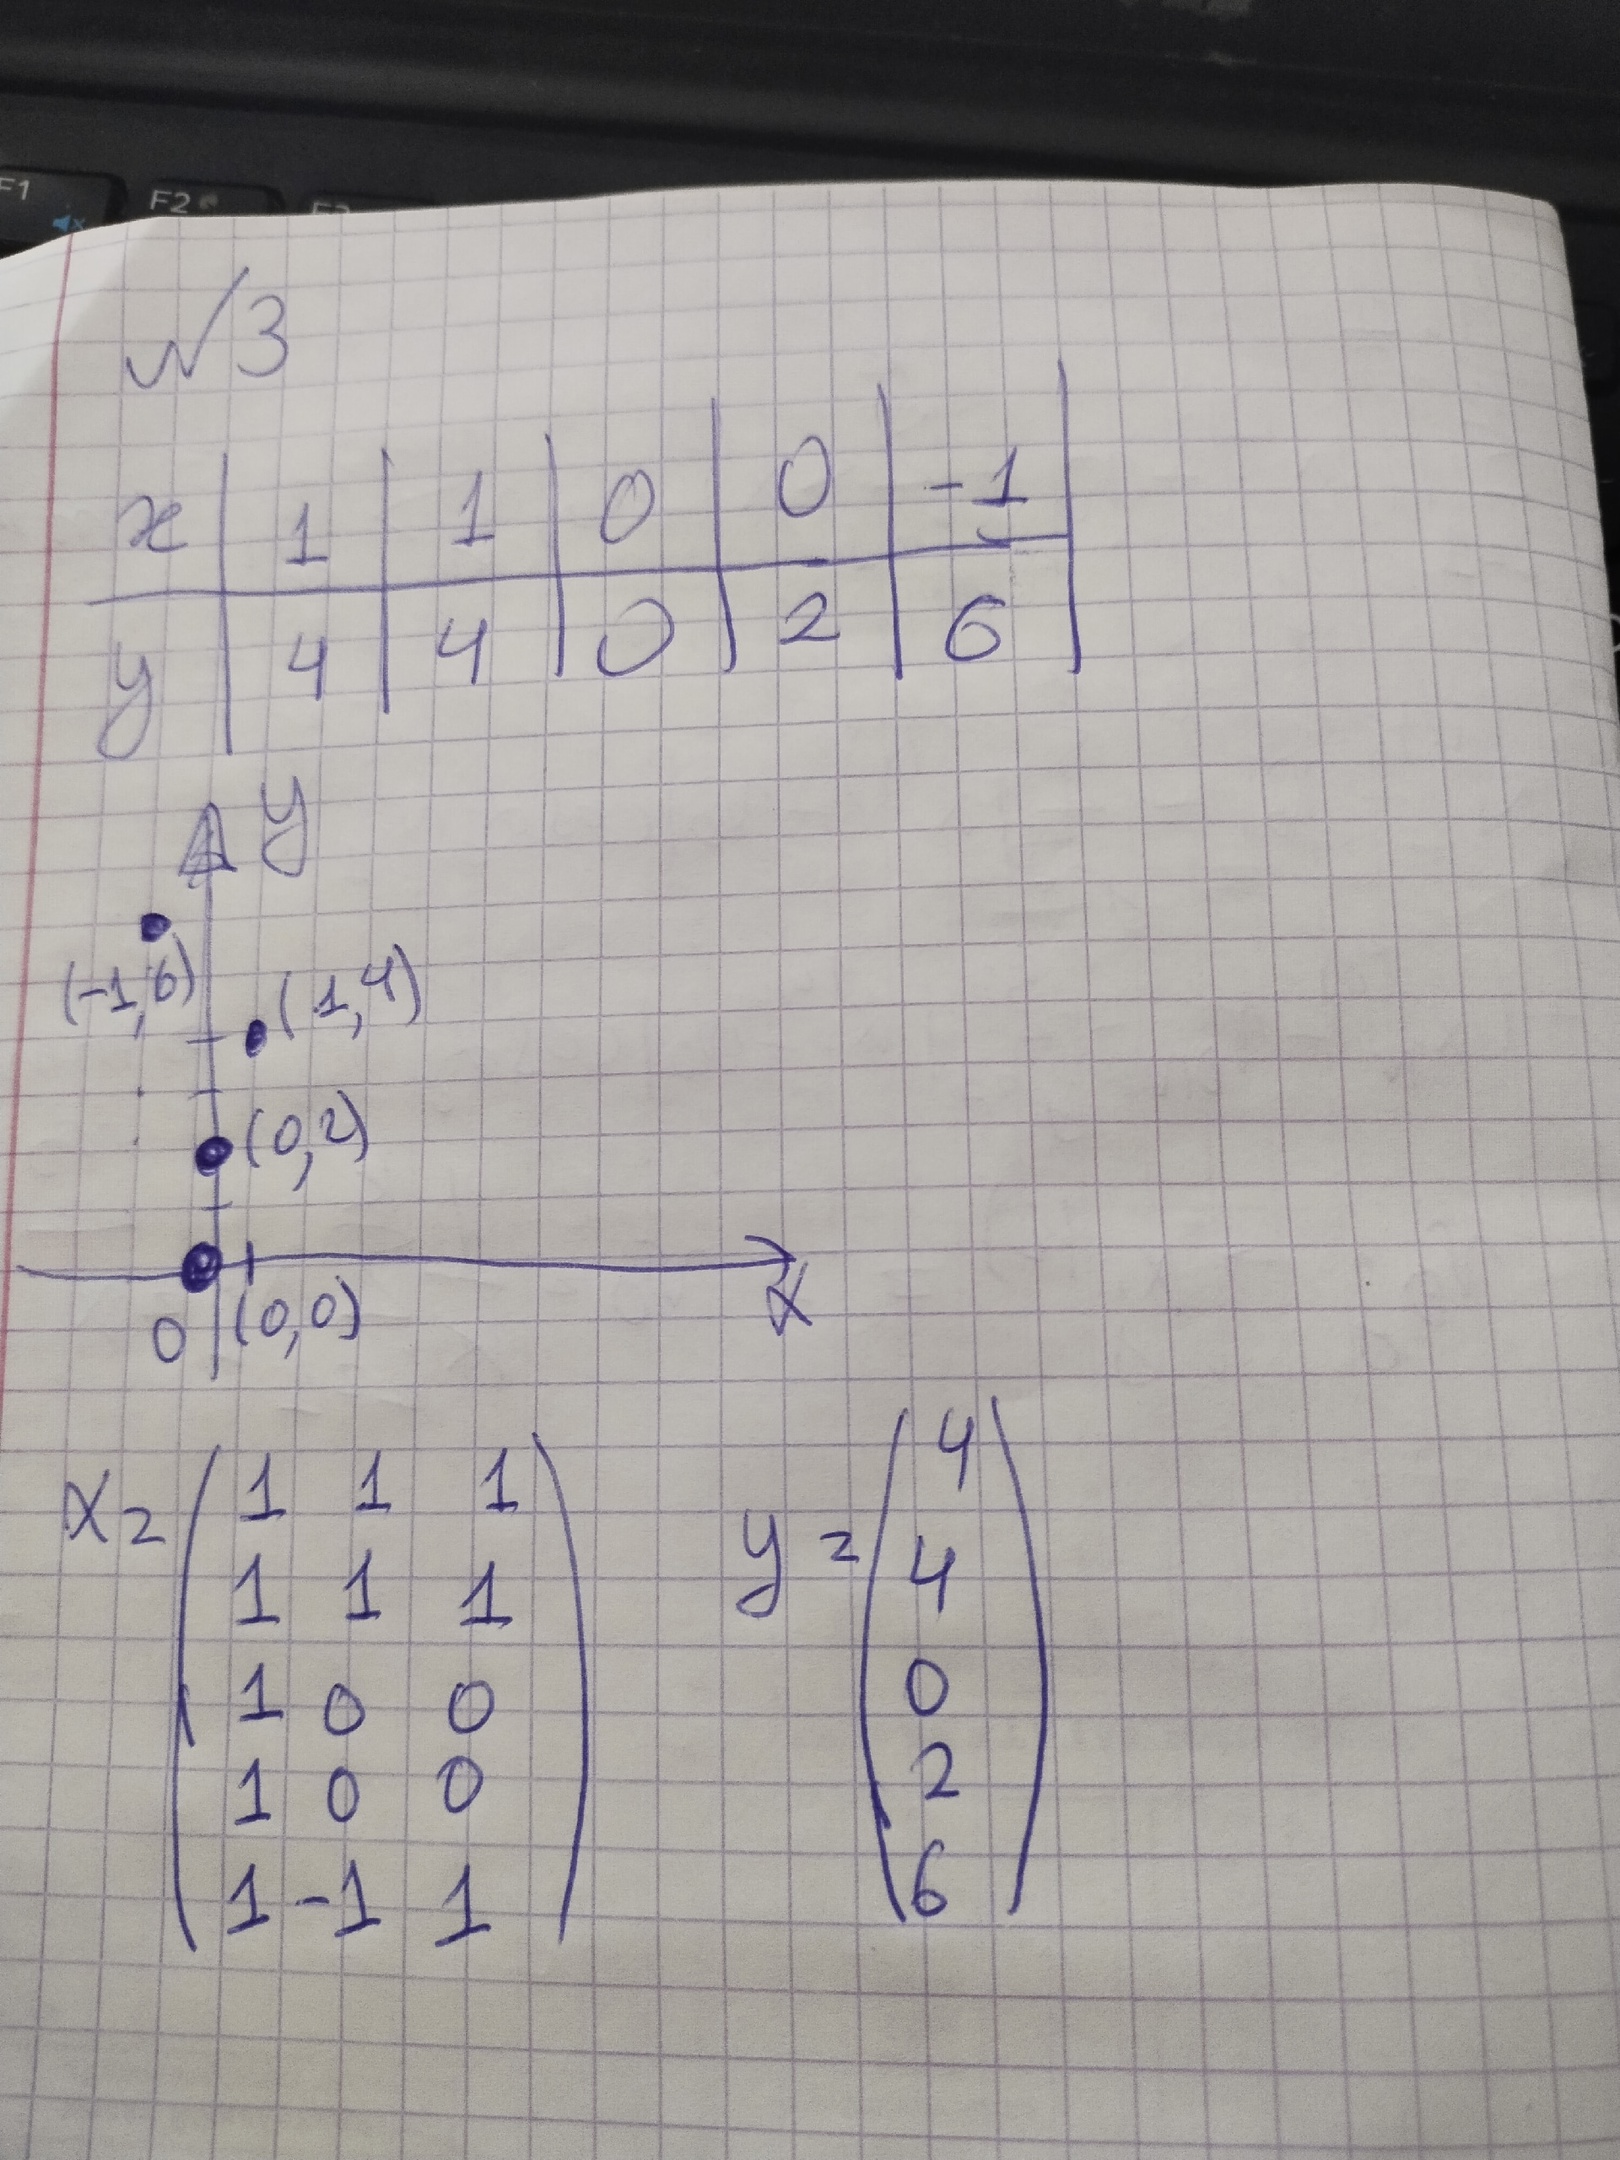 F1 F2
№3
x | 1 | 1 | 0 | 0 | -1 |
y | 4 | 4 | 0 | 2 | 6 |
y
(-1, 6)
(1, 4)
(0, 2)
0 (0, 0)
x
X = ( 1 1 1
1 1 1
1 0 0
1 0 0
1 -1 1 )
y = ( 4
4
0
2
6 )